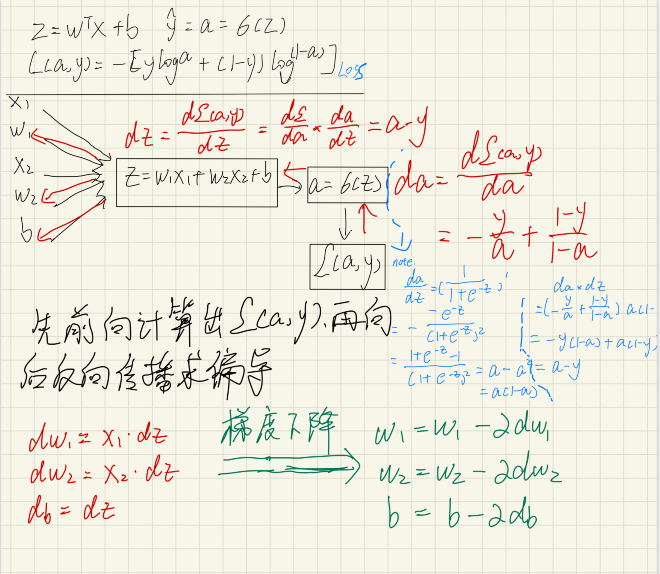 z = wᵀx + b   ŷ = a = 6(z)
L(a,y) = -[y log a + (1-y) log^(1-a)] Loss
x₁
w₁
x₂
w₂
b
dz = dL(a,y)/dz = dL/da * da/dz = a-y
z = w₁x₁ + w₂x₂ + b
a = 6(z)
L(a,y)
da = dL(a,y)/da
= -y/a + (1-y)/(1-a)
note
da/dz = (1/(1+e^-z))'
= - -e^-z/(1+e^-z)²
= (1+e^-z-1)/(1+e^-z)² = a - a²
= a(1-a)
da × dz
= (-y/a + (1-y)/(1-a)) a(1-
= -y(1-a) + a(1-y)
= a-y
先前向计算出L(a,y),再向
后反向传播求偏导
dw₁ = x₁·dz
dw₂ = x₂·dz
db = dz
梯度下降
w₁ = w₁ - 2dw₁
w₂ = w₂ - 2dw₂
b = b - 2db